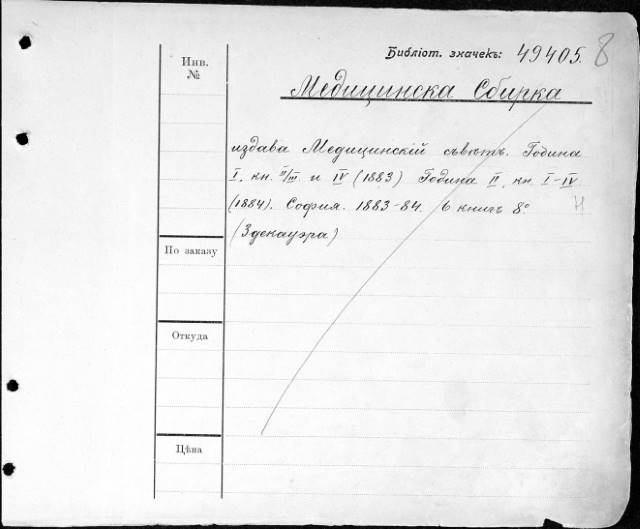 Библіот. значекъ: 49405. 8
Инв.
№
Медицинска Сбирка
издава Медицинскій съвѣтъ. Година
I, кн. II/III и IV (1883) Година II, кн. I-IV
(1884). София. 1883-84. 6 книгъ 8º
Н
(Здекауэра)
По заказу
Откуда
Цѣна